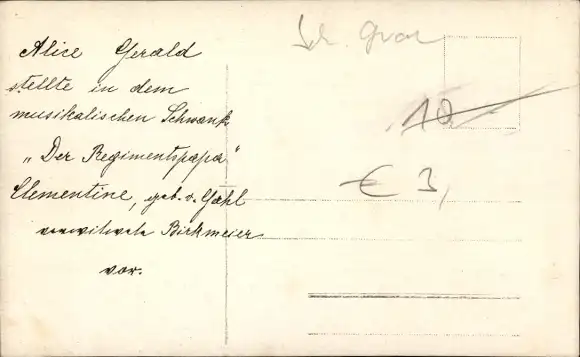 Alice Gerald
stellte in dem
musikalischen Schwank
„Der Regimentspapa“
Clementine, geb. v. Gahl
verwitwete Birkmeier
vor.
10
€ 3,